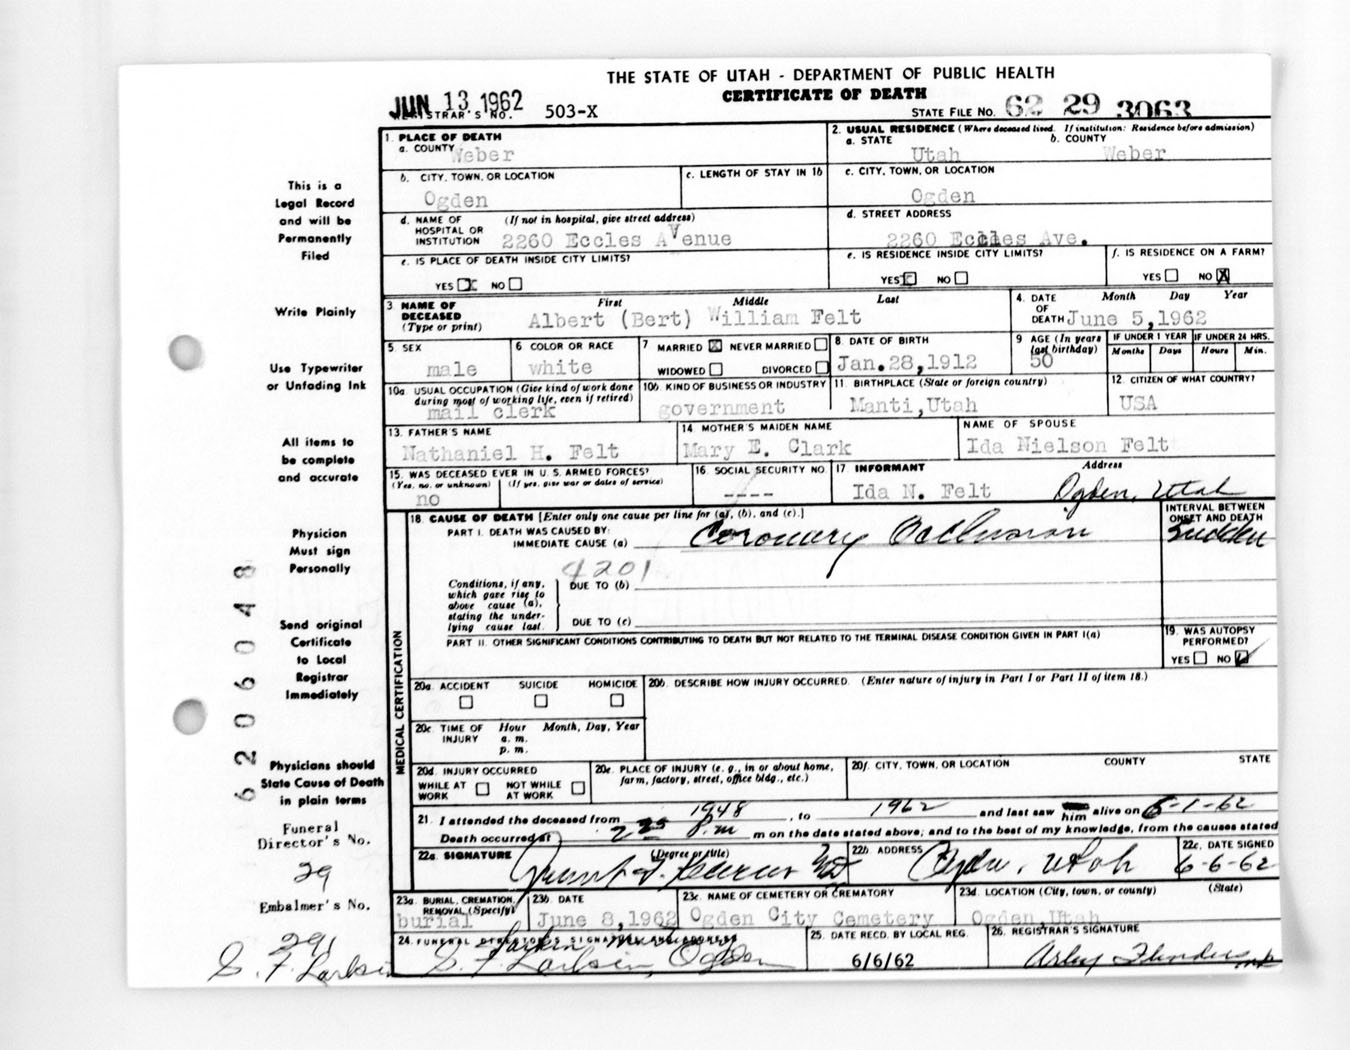 THE STATE OF UTAH - DEPARTMENT OF PUBLIC HEALTH
CERTIFICATE OF DEATH
JUN 13 1962
REGISTRAR'S NO. 503-X
STATE FILE NO. 62 29 3063
This is a
Legal Record
and will be
Permanently
Filed
Write Plainly
Use Typewriter
or Unfading Ink
All items to
be complete
and accurate
Physician
Must sign
Personally
Send original
Certificate
to Local
Registrar
Immediately
Physicians should
State Cause of Death
in plain terms
Funeral
Director's No.
29
Embalmer's No.
291
S. F. Larkin
62060048
1. PLACE OF DEATH
a. COUNTY Weber
2. USUAL RESIDENCE (Where deceased lived. If institution: Residence before admission)
a. STATE Utah b. COUNTY Weber
b. CITY, TOWN, OR LOCATION Ogden
c. LENGTH OF STAY IN 1b
c. CITY, TOWN, OR LOCATION Ogden
d. NAME OF HOSPITAL OR INSTITUTION (If not in hospital, give street address) 2260 Eccles Avenue
d. STREET ADDRESS 2260 Eccles Ave.
e. IS PLACE OF DEATH INSIDE CITY LIMITS?
YES X NO
e. IS RESIDENCE INSIDE CITY LIMITS?
YES NO
f. IS RESIDENCE ON A FARM?
YES NO X
3 NAME OF DECEASED (Type or print) First Middle Last
Albert (Bert) William Felt
4. DATE OF DEATH Month Day Year
June 5,1962
5. SEX male
6 COLOR OR RACE white
7 MARRIED X NEVER MARRIED
WIDOWED DIVORCED
8. DATE OF BIRTH Jan.28,1912
9 AGE (In years last birthday) 50
IF UNDER 1 YEAR Months Days
IF UNDER 24 HRS. Hours Min.
10a. USUAL OCCUPATION (Give kind of work done during most of working life, even if retired) mail clerk
10b. KIND OF BUSINESS OR INDUSTRY government
11. BIRTHPLACE (State or foreign country) Manti,Utah
12. CITIZEN OF WHAT COUNTRY? USA
13. FATHER'S NAME Nathaniel H. Felt
14 MOTHER'S MAIDEN NAME Mary E. Clark
NAME OF SPOUSE Ida Nielson Felt
15. WAS DECEASED EVER IN U. S. ARMED FORCES?
(Yes, no, or unknown) (If yes, give war or dates of service)
no
16. SOCIAL SECURITY NO. ----
17 INFORMANT Address
Ida N. Felt Ogden, Utah
MEDICAL CERTIFICATION
18. CAUSE OF DEATH [Enter only one cause per line for (a), (b), and (c).]
PART I. DEATH WAS CAUSED BY:
IMMEDIATE CAUSE (a) Coronary Occlusion
INTERVAL BETWEEN ONSET AND DEATH
Sudden
4201
Conditions, if any, which gave rise to above cause (a), stating the underlying cause last.
DUE TO (b)
DUE TO (c)
PART II. OTHER SIGNIFICANT CONDITIONS CONTRIBUTING TO DEATH BUT NOT RELATED TO THE TERMINAL DISEASE CONDITION GIVEN IN PART I(a)
19. WAS AUTOPSY PERFORMED?
YES NO
20a. ACCIDENT SUICIDE HOMICIDE
20b. DESCRIBE HOW INJURY OCCURRED. (Enter nature of injury in Part I or Part II of item 18.)
20c TIME OF INJURY Hour Month, Day, Year
a. m.
p. m.
20d. INJURY OCCURRED
WHILE AT WORK NOT WHILE AT WORK
20e. PLACE OF INJURY (e. g., in or about home, farm, factory, street, office bldg., etc.)
20f. CITY, TOWN, OR LOCATION COUNTY STATE
21. I attended the deceased from 1948, to 1962 and last saw him alive on 6-1-62
Death occurred at p.m m on the date stated above; and to the best of my knowledge, from the causes stated
22a. SIGNATURE (Degree or title) MD
22b ADDRESS Ogden, Utah
22c. DATE SIGNED 6-6-62
23a. BURIAL, CREMATION, REMOVAL (Specify) burial
23b. DATE June 8,1962
23c NAME OF CEMETERY OR CREMATORY Ogden City Cemetery
23d. LOCATION (City, town, or county) (State)
Ogden,Utah
24. FUNERAL DIRECTOR'S SIGNATURE AND ADDRESS
S. F. Larkin, Ogden
25. DATE RECD. BY LOCAL REG. 6/6/62
26. REGISTRAR'S SIGNATURE